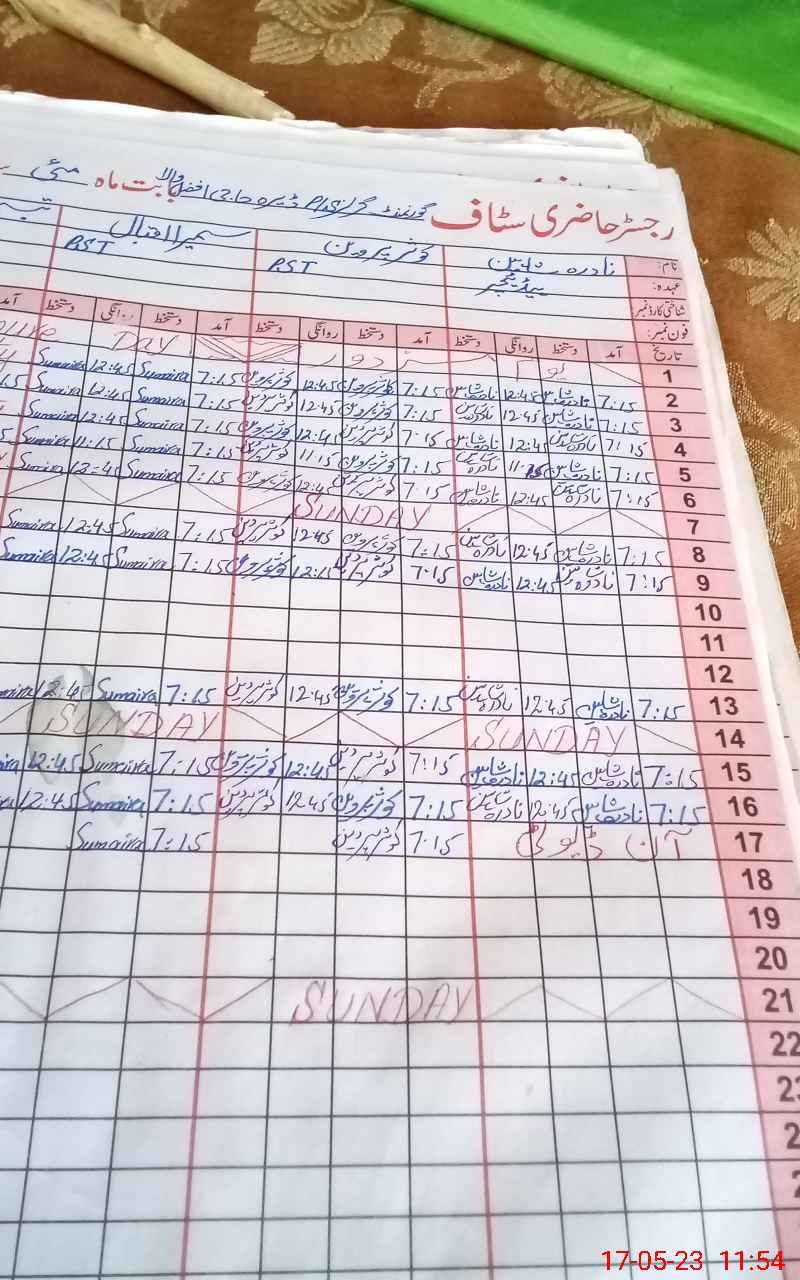 رجسٹر حاضری سٹاف گورنمنٹ گرلز P/S ڈیرہ حاجی افضل والا بابت ماہ مئی
نام: نادرہ شاہین کوثر پروین سمیرا اقبال
عہدہ: ہیڈ ٹیچر PST PST
شناختی کارڈ نمبر
فون نمبر:
تاریخ آمد دستخط روانگی دستخط آمد دستخط روانگی دستخط آمد دستخط روانگی دستخط آمد
1 یوم مزدور DAY
2 7:15 نادرہ شاہین 12:45 نادرہ شاہین 7:15 کوثر پروین 12:45 کوثر پروین 7:15 Sumaira 12:45 Sumaira
3 7:15 نادرہ شاہین 12:45 نادرہ شاہین 7:15 کوثر پروین 12:45 کوثر پروین 7:15 Sumaira 12:45 Sumaira
4 7:15 نادرہ شاہین 12:45 نادرہ شاہین 7:15 کوثر پروین کوثر پروین 7:15 Sumaira 12:45 Sumaira
5 7:15 نادرہ شاہین 11:15 نادرہ شاہین 7:15 کوثر پروین 11:15 کوثر پروین 7:15 Sumaira 11:15 Sumaira
6 7:15 نادرہ شاہین 12:45 نادرہ شاہین 7:15 کوثر پروین 12:45 کوثر پروین 7:15 Sumaira 12:45 Sumaira
7 SUNDAY
8 7:15 نادرہ شاہین 12:45 نادرہ شاہین 7:15 کوثر پروین 12:45 کوثر پروین 7:15 Sumaira 12:45 Sumaira
9 7:15 نادرہ شاہین 12:45 نادرہ شاہین 7:15 کوثر پروین کوثر پروین 7:15 Sumaira 12:45 Sumaira
10
11
12
13 7:15 نادرہ شاہین 12:45 نادرہ شاہین 7:15 کوثر پروین 12:45 کوثر پروین 7:15 Sumaira 12:45
14 SUNDAY SUNDAY
15 7:15 نادرہ شاہین 12:45 نادرہ شاہین 7:15 کوثر پروین 12:45 کوثر پروین 7:15 Sumaira 12:45
16 7:15 نادرہ شاہین 12:45 نادرہ شاہین 7:15 کوثر پروین 12:45 کوثر پروین 7:15 Sumaira 12:45
17 آن ڈیوٹی 7:15 کوثر پروین 7:15 Sumaira
18
19
20
21 SUNDAY
22
17-05-23 11:54